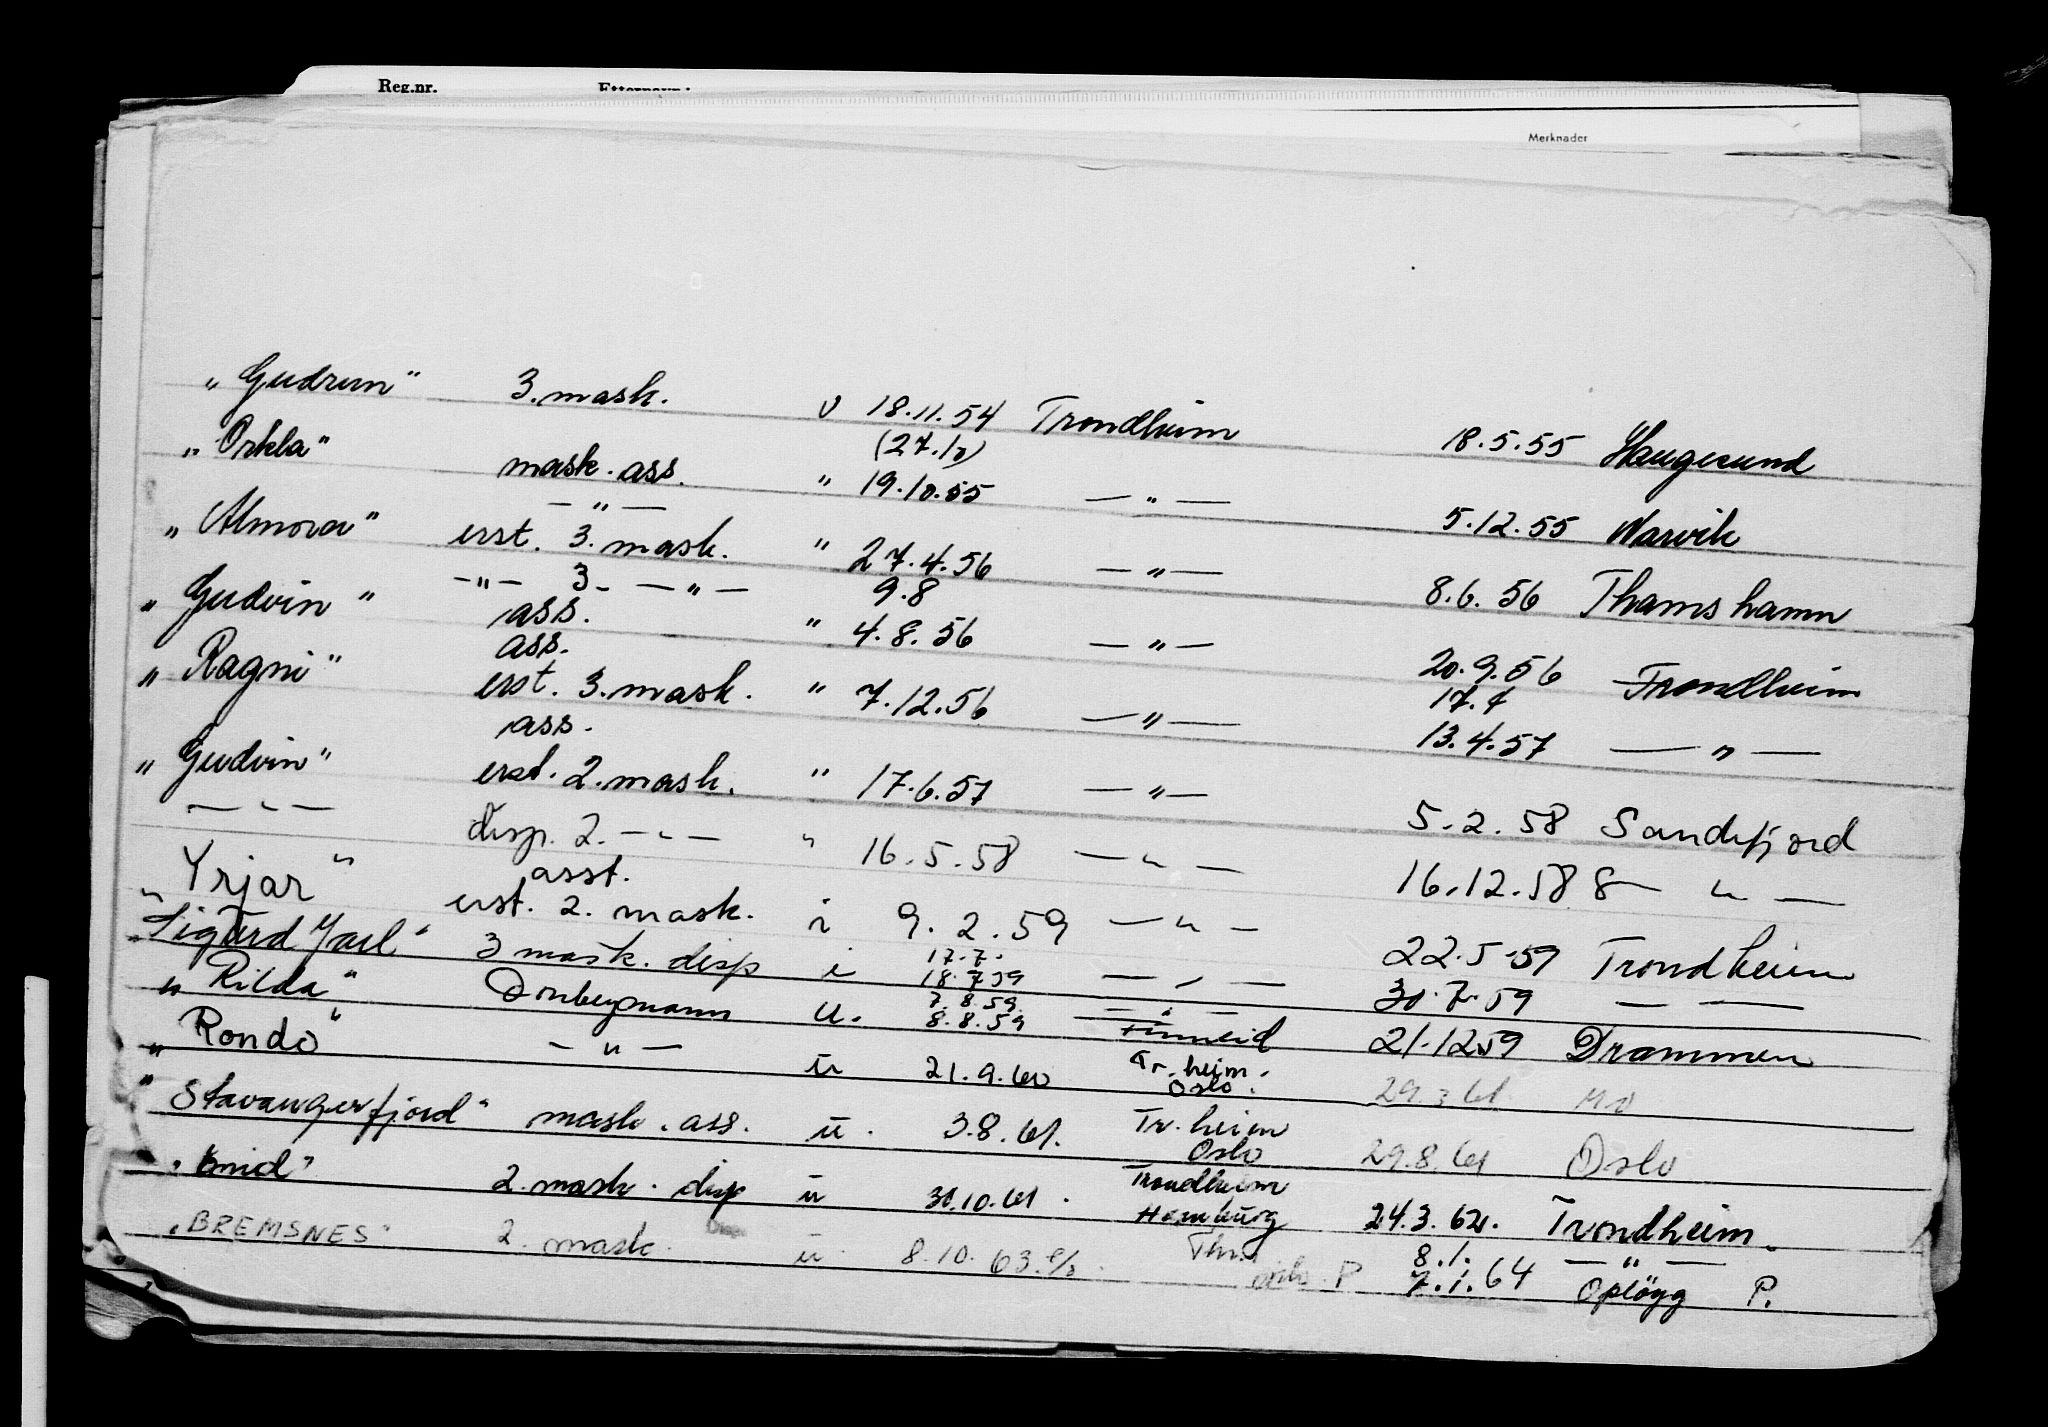 Reg.nr.
Merknader
„Gudrun" 3. mask. v 18.11.54 Trondheim 18.5.55 Haugesund
(27.10)
„Orkla" mask. ass. " 19.10.55 — " — 5.12.55 Narvik
— " —
„Almora" erst. 3. mask. " 27.4.56 — " — 8.6.56 Thamshamn
— " — 3. — " — 9.8
„Gudvin" ass. " 4.8.56 — " — 20.9.56 Trondheim
ass. 17.4
„Ragni" erst. 3. mask. " 7.12.56 — " — 13.4.57 — " —
ass.
„Gudvin" erst. 2. mask. " 17.6.57 — " — 5.2.58 Sandefjord
— " — disp. 2. — " — " 16.5.58 — " — 16.12.58 — " —
asst.
„Yrjar" erst. 2. mask. i 9.2.59 — " — 22.5.59 Trondheim
17.7.
„Sigurd Jarl" 3 mask. disp i 18.7.59 — " — 30.7.59 — " —
7.8.59 — " —
„Rilda" Donkeymann u. 8.8.59 Finneid 21.12.59 Drammen
„Rondo" — " — u 21.9.60 Tr.heim. 29.3.61 Mo
Oslo.
„Stavangerfjord" mask. ass. u. 3.8.61. Tr.heim 29.8.61 Oslo
Oslo
„Enid" 2. mask. disp u 30.10.61. Trondheim 24.3.62. Trondheim.
Hamburg
8.1. — " —
„BREMSNES" 2. mask. u 8.10.63 Thm. 7.1.64 Opløgg P.
Oslo P